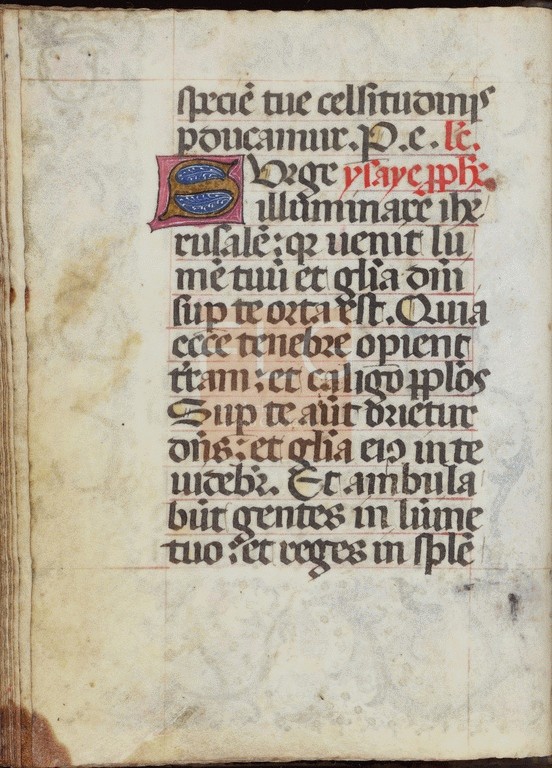 speciē tue celsitudinis
ꝑducamur. P. e. lc̄.
SUrge ysaye ꝓph̄e.
illuminare ihe
rusalē: qꝛ uenit lu
mē tuū et gl̄ia dn̄i
sup te orta est. Quia
ecce tenebre opient
t̄ram: et caligo ꝓpl̄os
Sup te aūt orietur
dn̄s: et gl̄ia eiꝰ in te
uidebr̄. Et ambula
būt gentes in lumīe
tuo: et reges in splē